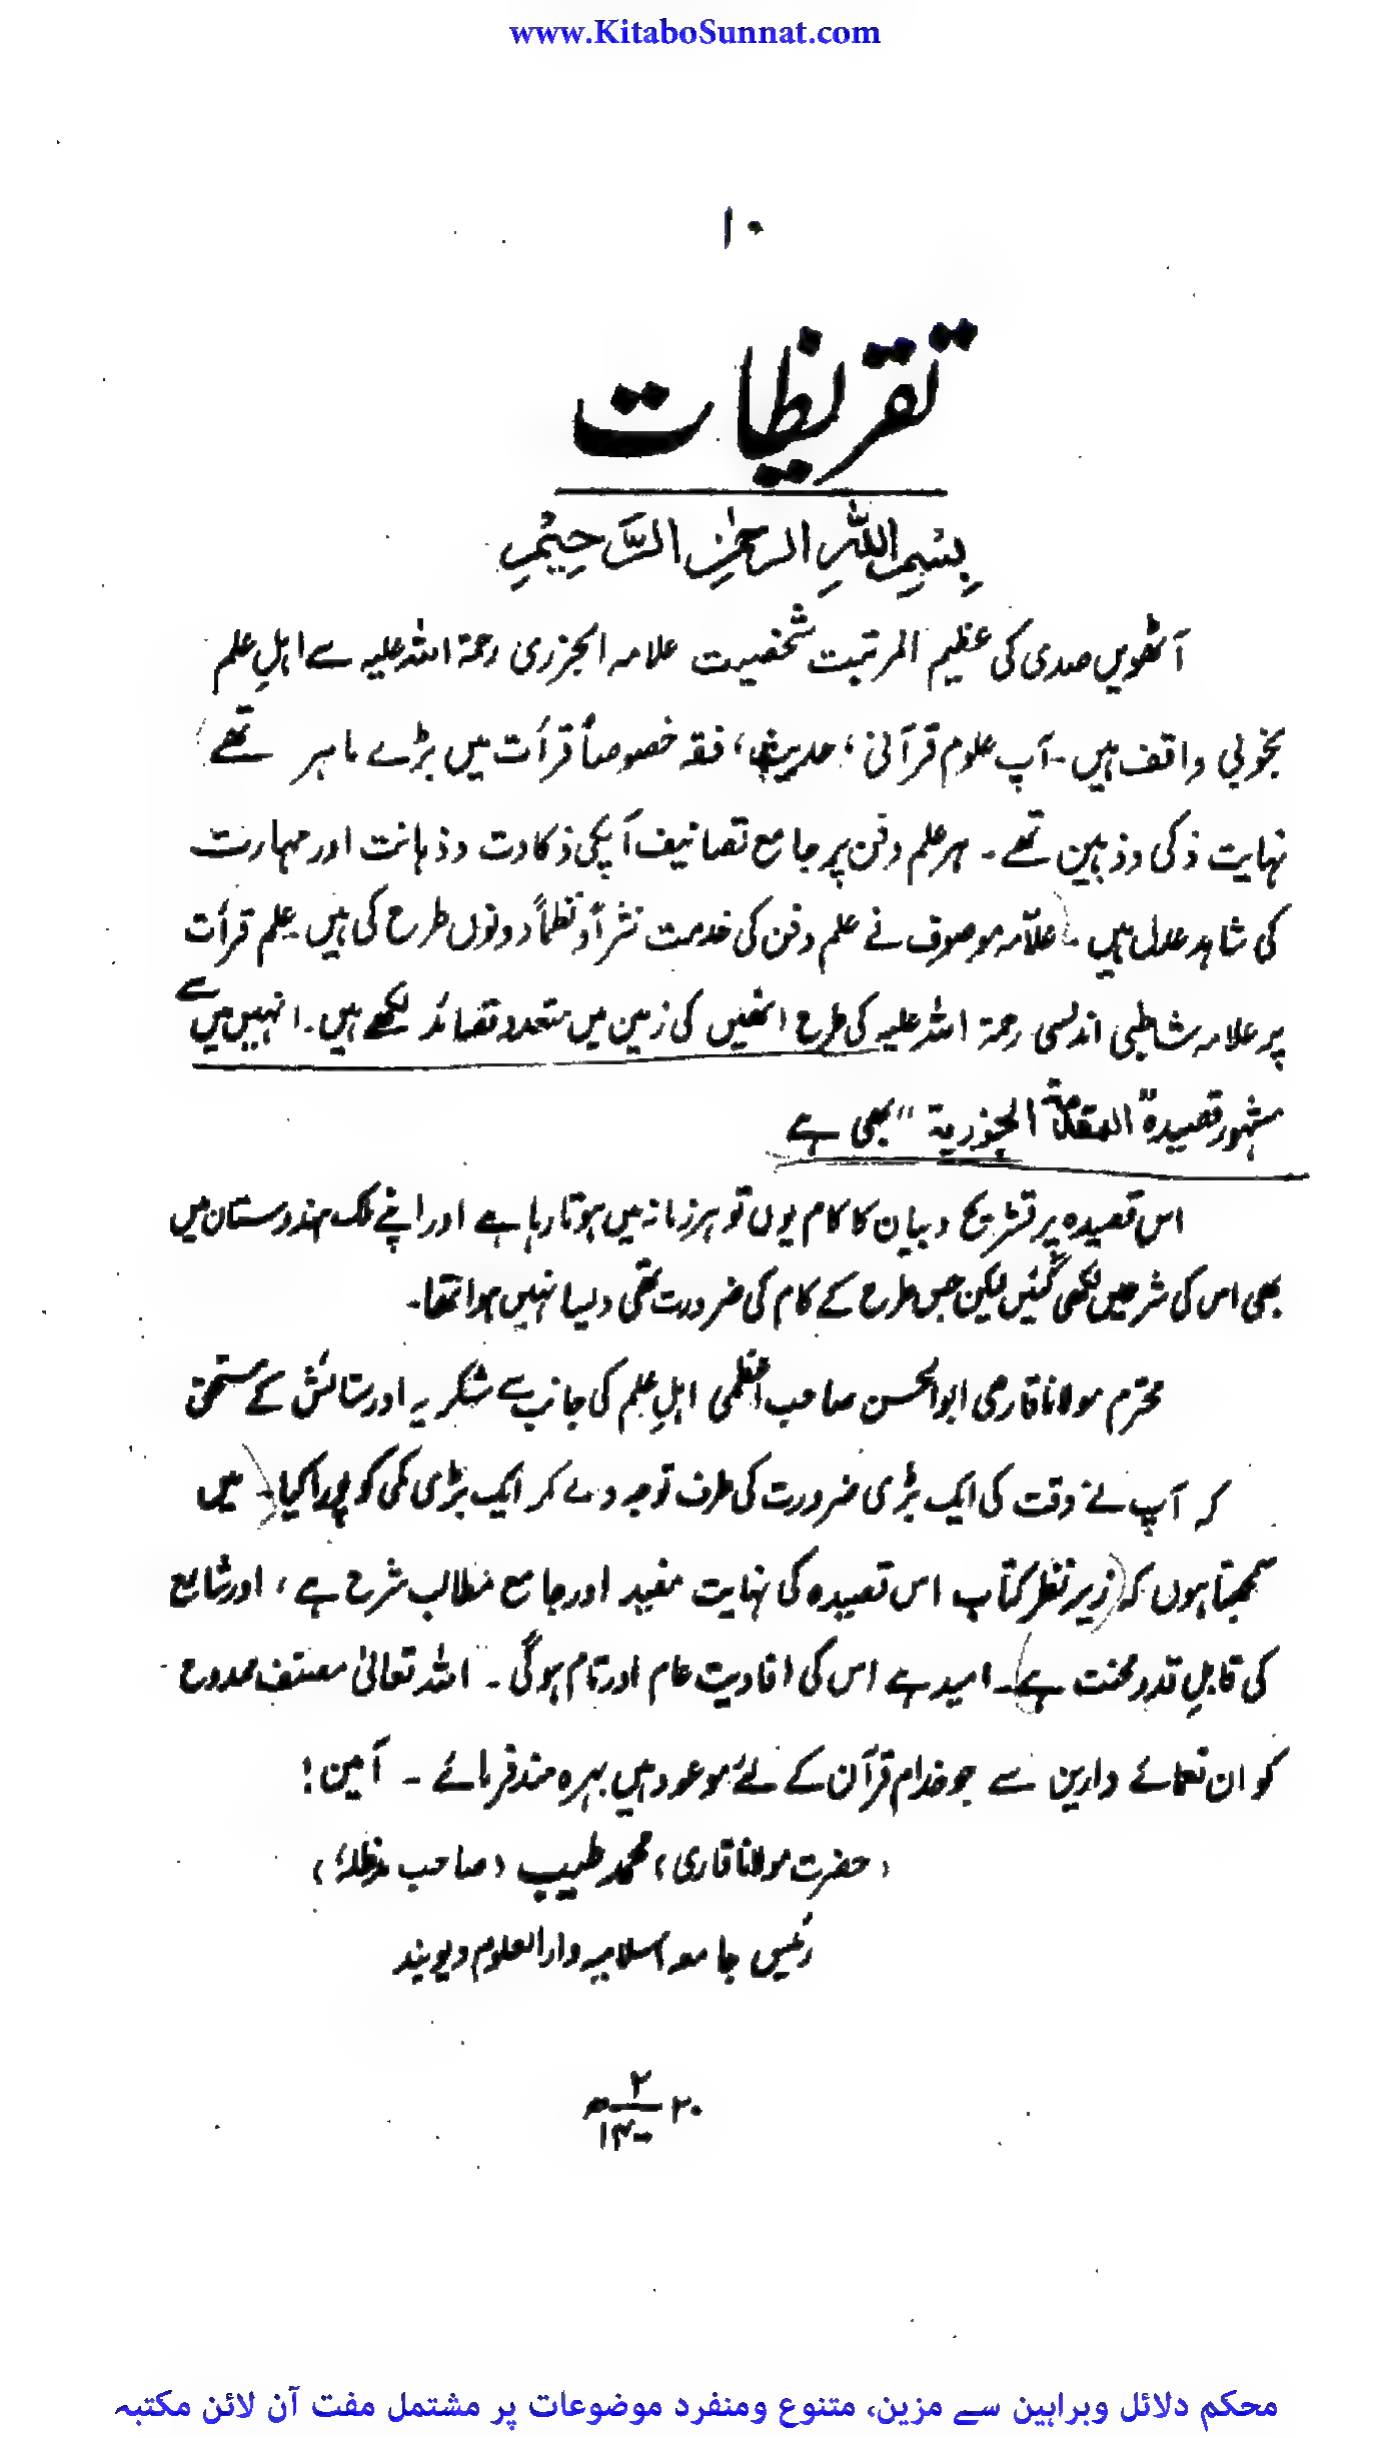 www.KitaboSunnat.com
۱۰
تقریظات
بِسْمِ اللّٰہِ الرحمٰنِ الرَّحِیْمِ
آٹھویں صدی کی عظیم المرتبت شخصیت علامہ الجزری رحمۃ اللہ علیہ سے اہلِ علم
بخوبی واقف ہیں۔ آپ علوم قرآنی، حدیث، فقہ خصوصاً قرأت میں بڑے ماہر تھے
نہایت ذکی وذہین تھے۔ ہر علم وفن پر جامع تصانیف آپکی ذکاوت وذہانت اور مہارت
کی شاہد عدل ہیں۔ علّامہ موصوف نے علم وفن کی خدمت نثراً ونظماً دونوں طرح کی ہیں۔ علم قرأت
پر علامہ شاطبی اندلسی رحمۃ اللہ علیہ کی طرح انھیں کی زمین میں متعدد قصائد لکھے ہیں۔ انہیں میں سے
مشہور قصیدہ "المقدمۃ الجزریۃ" بھی ہے
اس قصیدہ پر تشریح وبیان کا کام یوں تو ہر زمانہ میں ہوتا رہا ہے اور اپنے ملک ہندوستان میں
بھی اس کی شرحیں لکھی گئیں لیکن جس طرح کے کام کی ضرورت تھی ویسا نہیں ہوا تھا۔
محترم مولانا قاری ابوالحسن صاحب اعظمی اہلِ علم کی جانب سے شکریہ اور ستائش کے مستحق
کہ آپ نے وقت کی ایک بڑی ضرورت کی طرف توجہ دے کر ایک بڑی کمی کو پورا کیا۔ میں
سمجھتا ہوں کہ زیر نظر کتاب اس قصیدہ کی نہایت مفید اور جامع مطالب شرح ہے، اور شارح
کی قابلِ قدر محنت ہے۔ امید ہے اس کی افادیت عام اور تام ہوگی۔ اللہ تعالیٰ مصنف ممدوح
کو ان نعمائے دارین سے جو خدام قرآن کے لئے موعود ہیں بہرہ مند فرمائے۔ آمین!
(حضرت مولانا قاری) محمد طیب (صاحب مدظلہٗ)
رئیس جامعہ اسلامیہ دارالعلوم دیوبند
۲۰ ۲/۱۴۰۰ھ
محکم دلائل وبراہین سے مزین، متنوع ومنفرد موضوعات پر مشتمل مفت آن لائن مکتبہ